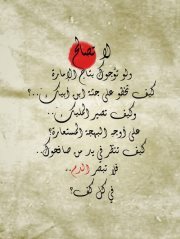 لا تصالح
ولو توّجوك بتاج الإمارة
كيف تخطو على جثة ابن أبيك..؟
وكيف تصير المليك..
على أوجه البهجة المستعارة؟
كيف تنظر في يد من صافحوك..
فلا تبصر الدم..
في كل كف؟